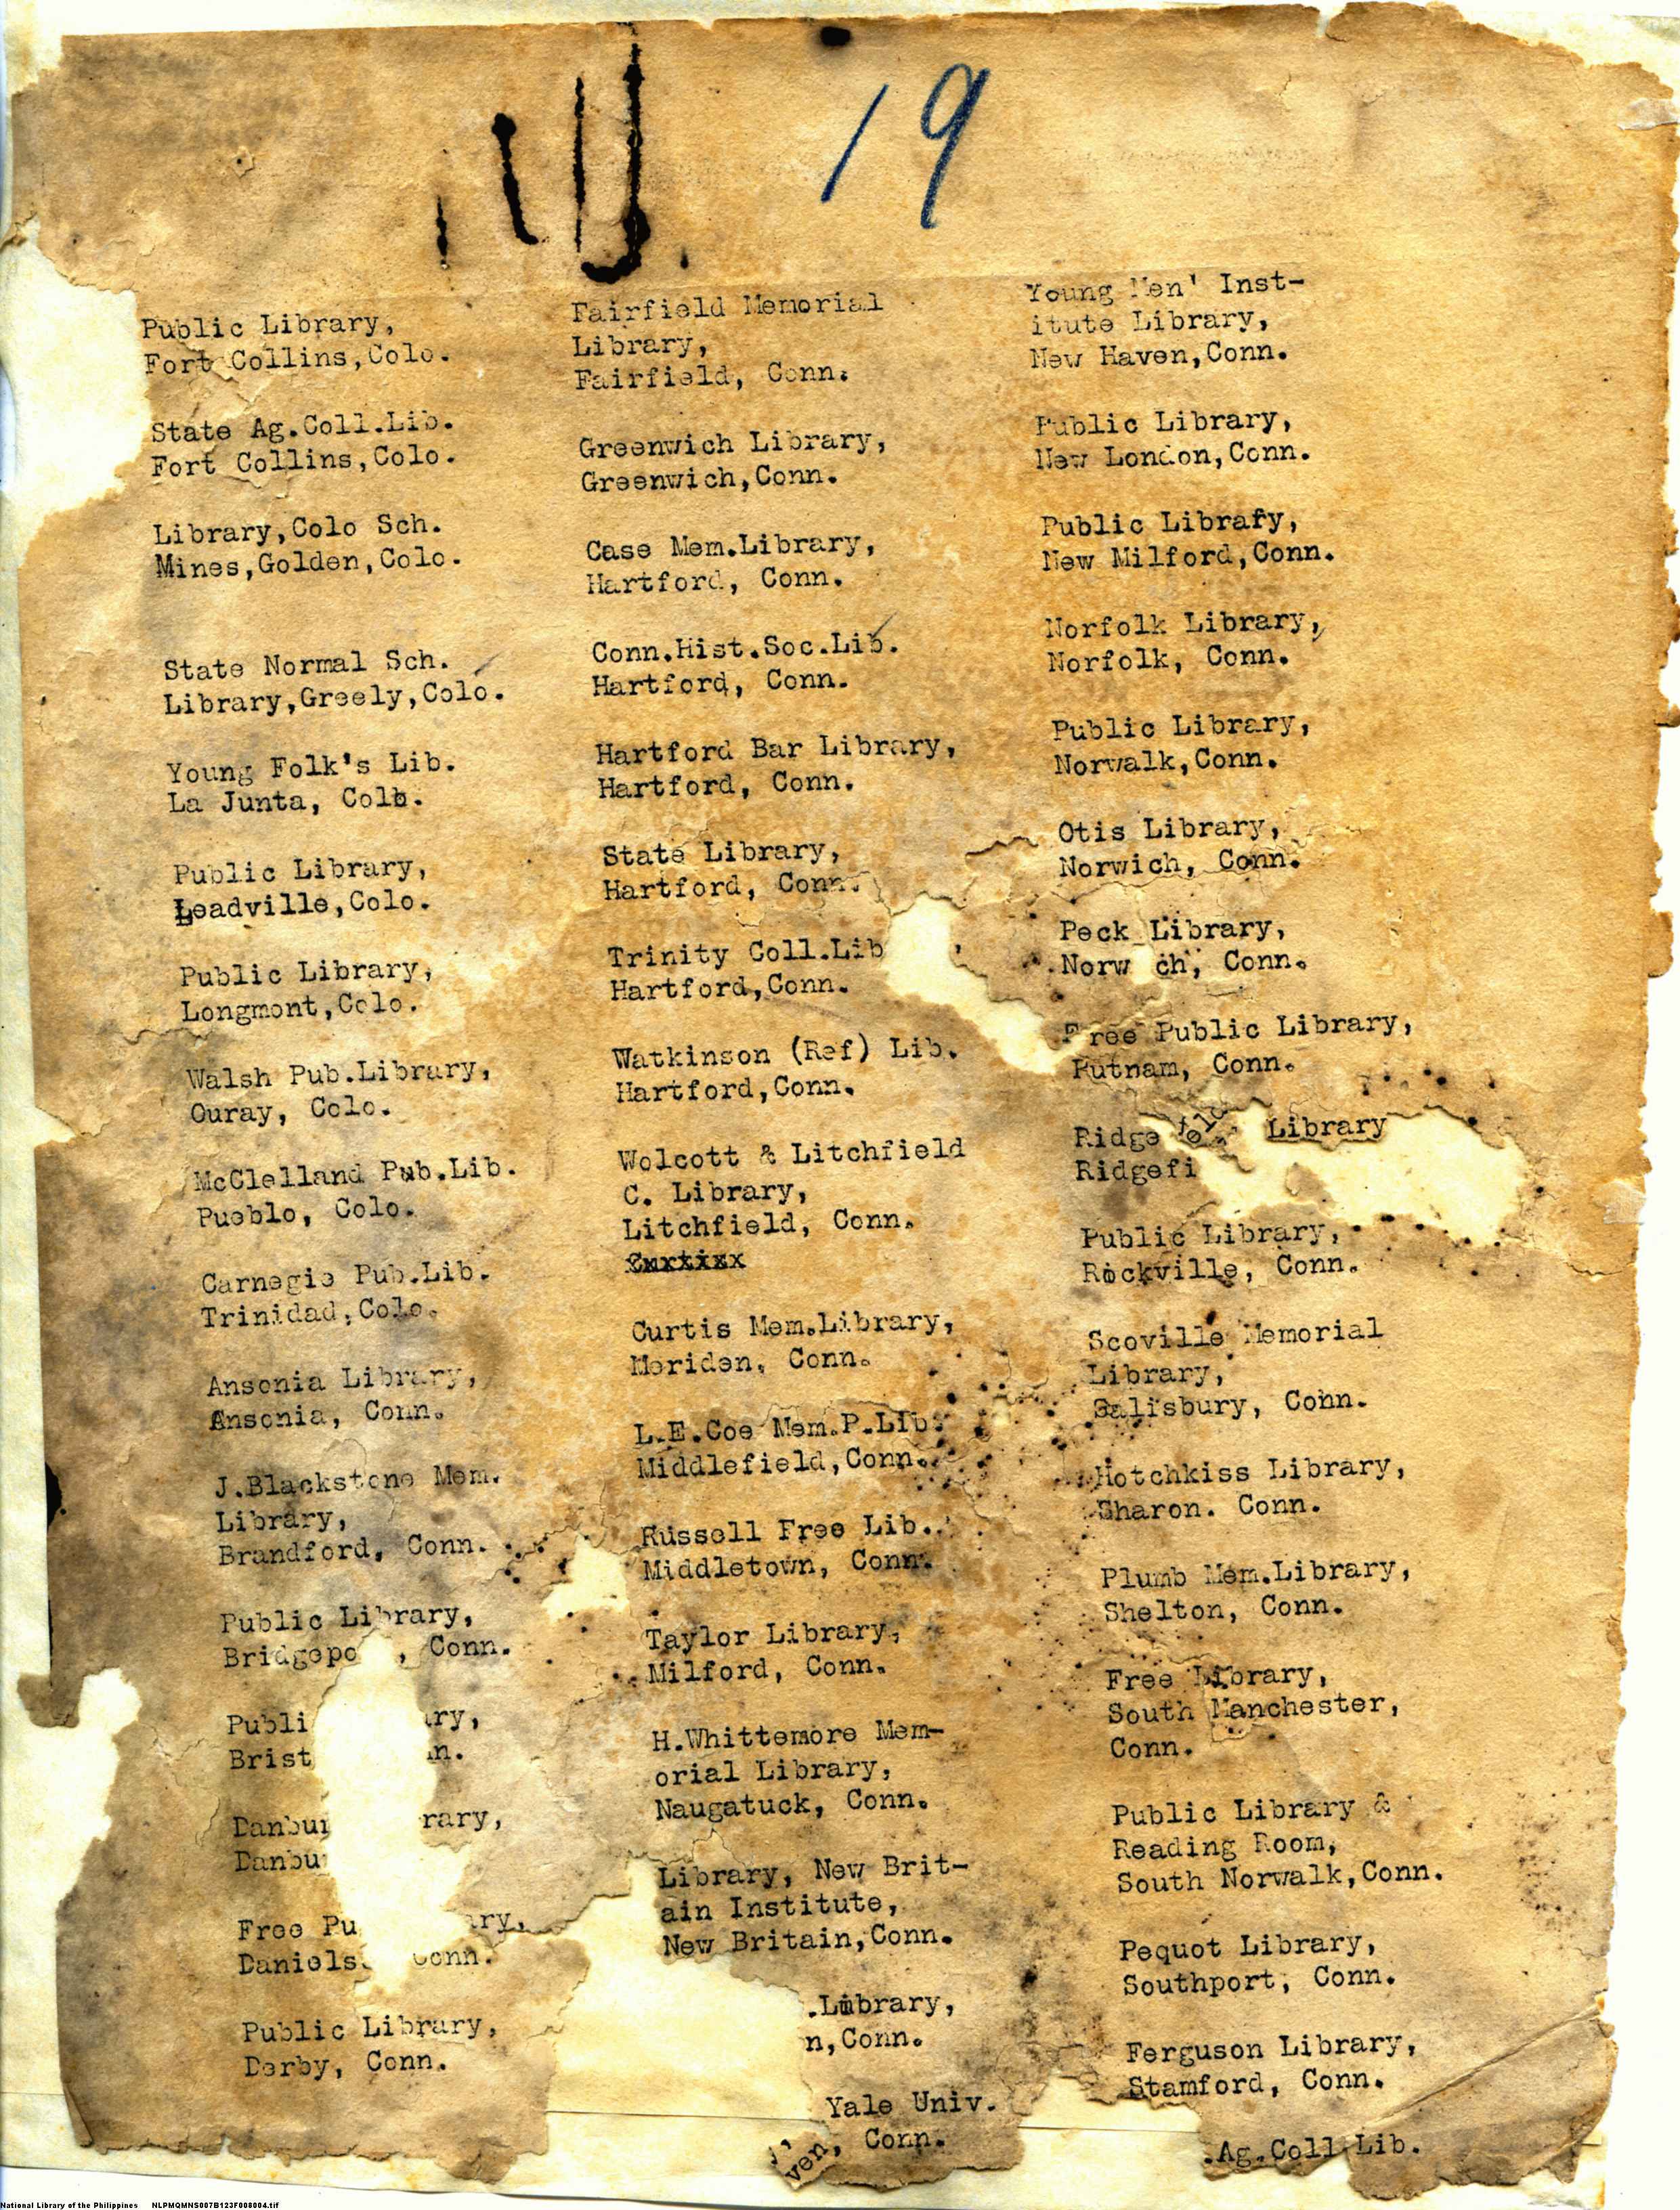 19
Public Library,
Fort Collins,Colo.
State Ag.Coll.Lib.
Fort Collins,Colo.
Library,Colo Sch.
Mines,Golden,Colo.
State Normal Sch.
Library,Greely,Colo.
Young Folk's Lib.
La Junta, Colo.
Public Library,
Leadville,Colo.
Public Library,
Longmont,Colo.
Walsh Pub.Library,
Ouray, Colo.
McClelland Pub.Lib.
Pueblo, Colo.
Carnegie Pub.Lib.
Trinidad,Colo.
Ansonia Library,
Ansonia, Conn.
J.Blackstone Mem.
Library,
Brandford, Conn.
Public Library,
Bridgepo , Conn.
Publi ary,
Brist n.
Danbur rary,
Danbu
Free Pu ary,
Daniels. Conn.
Public Library,
Derby, Conn.
Fairfield Memorial
Library,
Fairfield, Conn.
Greenwich Library,
Greenwich,Conn.
Case Mem.Library,
Hartford, Conn.
Conn.Hist.Soc.Lib.
Hartford, Conn.
Hartford Bar Library,
Hartford, Conn.
State Library,
Hartford, Conn.
Trinity Coll.Lib
Hartford,Conn.
Watkinson (Ref) Lib.
Hartford,Conn.
Wolcott & Litchfield
C. Library,
Litchfield, Conn.
Curtis Mem.Library,
Meriden, Conn.
L.E.Coe Mem.P.Lib.
Middlefield,Conn.
Russell Free Lib.
Middletown, Conn.
Taylor Library,
Milford, Conn.
H.Whittemore Mem-
orial Library,
Naugatuck, Conn.
Library, New Brit-
ain Institute,
New Britain,Conn.
.Library,
n,Conn.
Yale Univ.
ven, Conn.
Young Men' Inst-
itute Library,
New Haven,Conn.
Public Library,
New London,Conn.
Public Library,
New Milford,Conn.
Norfolk Library,
Norfolk, Conn.
Public Library,
Norwalk,Conn.
Otis Library,
Norwich, Conn.
Peck Library,
Norw ch, Conn.
Free Public Library,
Putnam, Conn.
Ridge field Library
Ridgefi
Public Library,
Rockville, Conn.
Scoville Memorial
Library,
Salisbury, Conn.
Hotchkiss Library,
Sharon. Conn.
Plumb Mem.Library,
Shelton, Conn.
Free Library,
South Manchester,
Conn.
Public Library &
Reading Room,
South Norwalk,Conn.
Pequot Library,
Southport, Conn.
Ferguson Library,
Stamford, Conn.
.Ag.Coll Lib.
National Library of the Philippines NLPMQMNS007B123F008004.tif